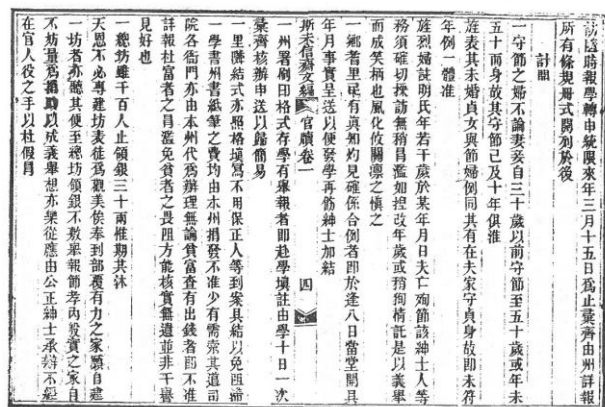 訪逕時報學轉申統限來年三月十五日爲止彙齊由州詳報
所有條規册式開列於後
計開
一守節之婦不論妻妾自三十歲以前守節至五十歲或年未
五十而身故其守節已及十年俱准
旌表其未婚貞女與節婦例同其有在夫家守貞身故即未符
年例一體准
旌烈婦註明氏年若干歲於某年月日夫亡殉節該紳士人等
務須確切採訪無稍冒濫如控改年歲或稍徇情託是以義舉
而成笑柄也風化攸關凜之愼之
一鄉耆里民有真知灼見確係合例者即於逢八日當堂開具
年月事實呈送以便發學再飭紳士加結
斯未信齋文編 官牘卷一 四
一州署刷印格式存學有舉報者即赴學塡註由學十日一次
彙齊核辦申送以歸簡易
一里鄰結式亦照格塡寫不用保正人等到案具結以免阻滯
一學書州書紙筆之費均由本州捐發不准少有需索其道司
院各衙門亦由本州代爲辦理無論貧富查有出錢者即不准
詳報杜富者之冒濫免貧者之畏阻方能核實無遺並非干譽
見好也
一總坊雖千百人止領銀三十兩惟期其沐
天恩不必專建坊表徒爲觀美俟奉到部覆有力之家願自建
一坊者亦聽其便至總坊領銀不敷舉報節孝內殷實之家自
不妨量爲捐助以成義舉想亦樂從應由公正紳士承辦不經
在官人役之手以杜假冒